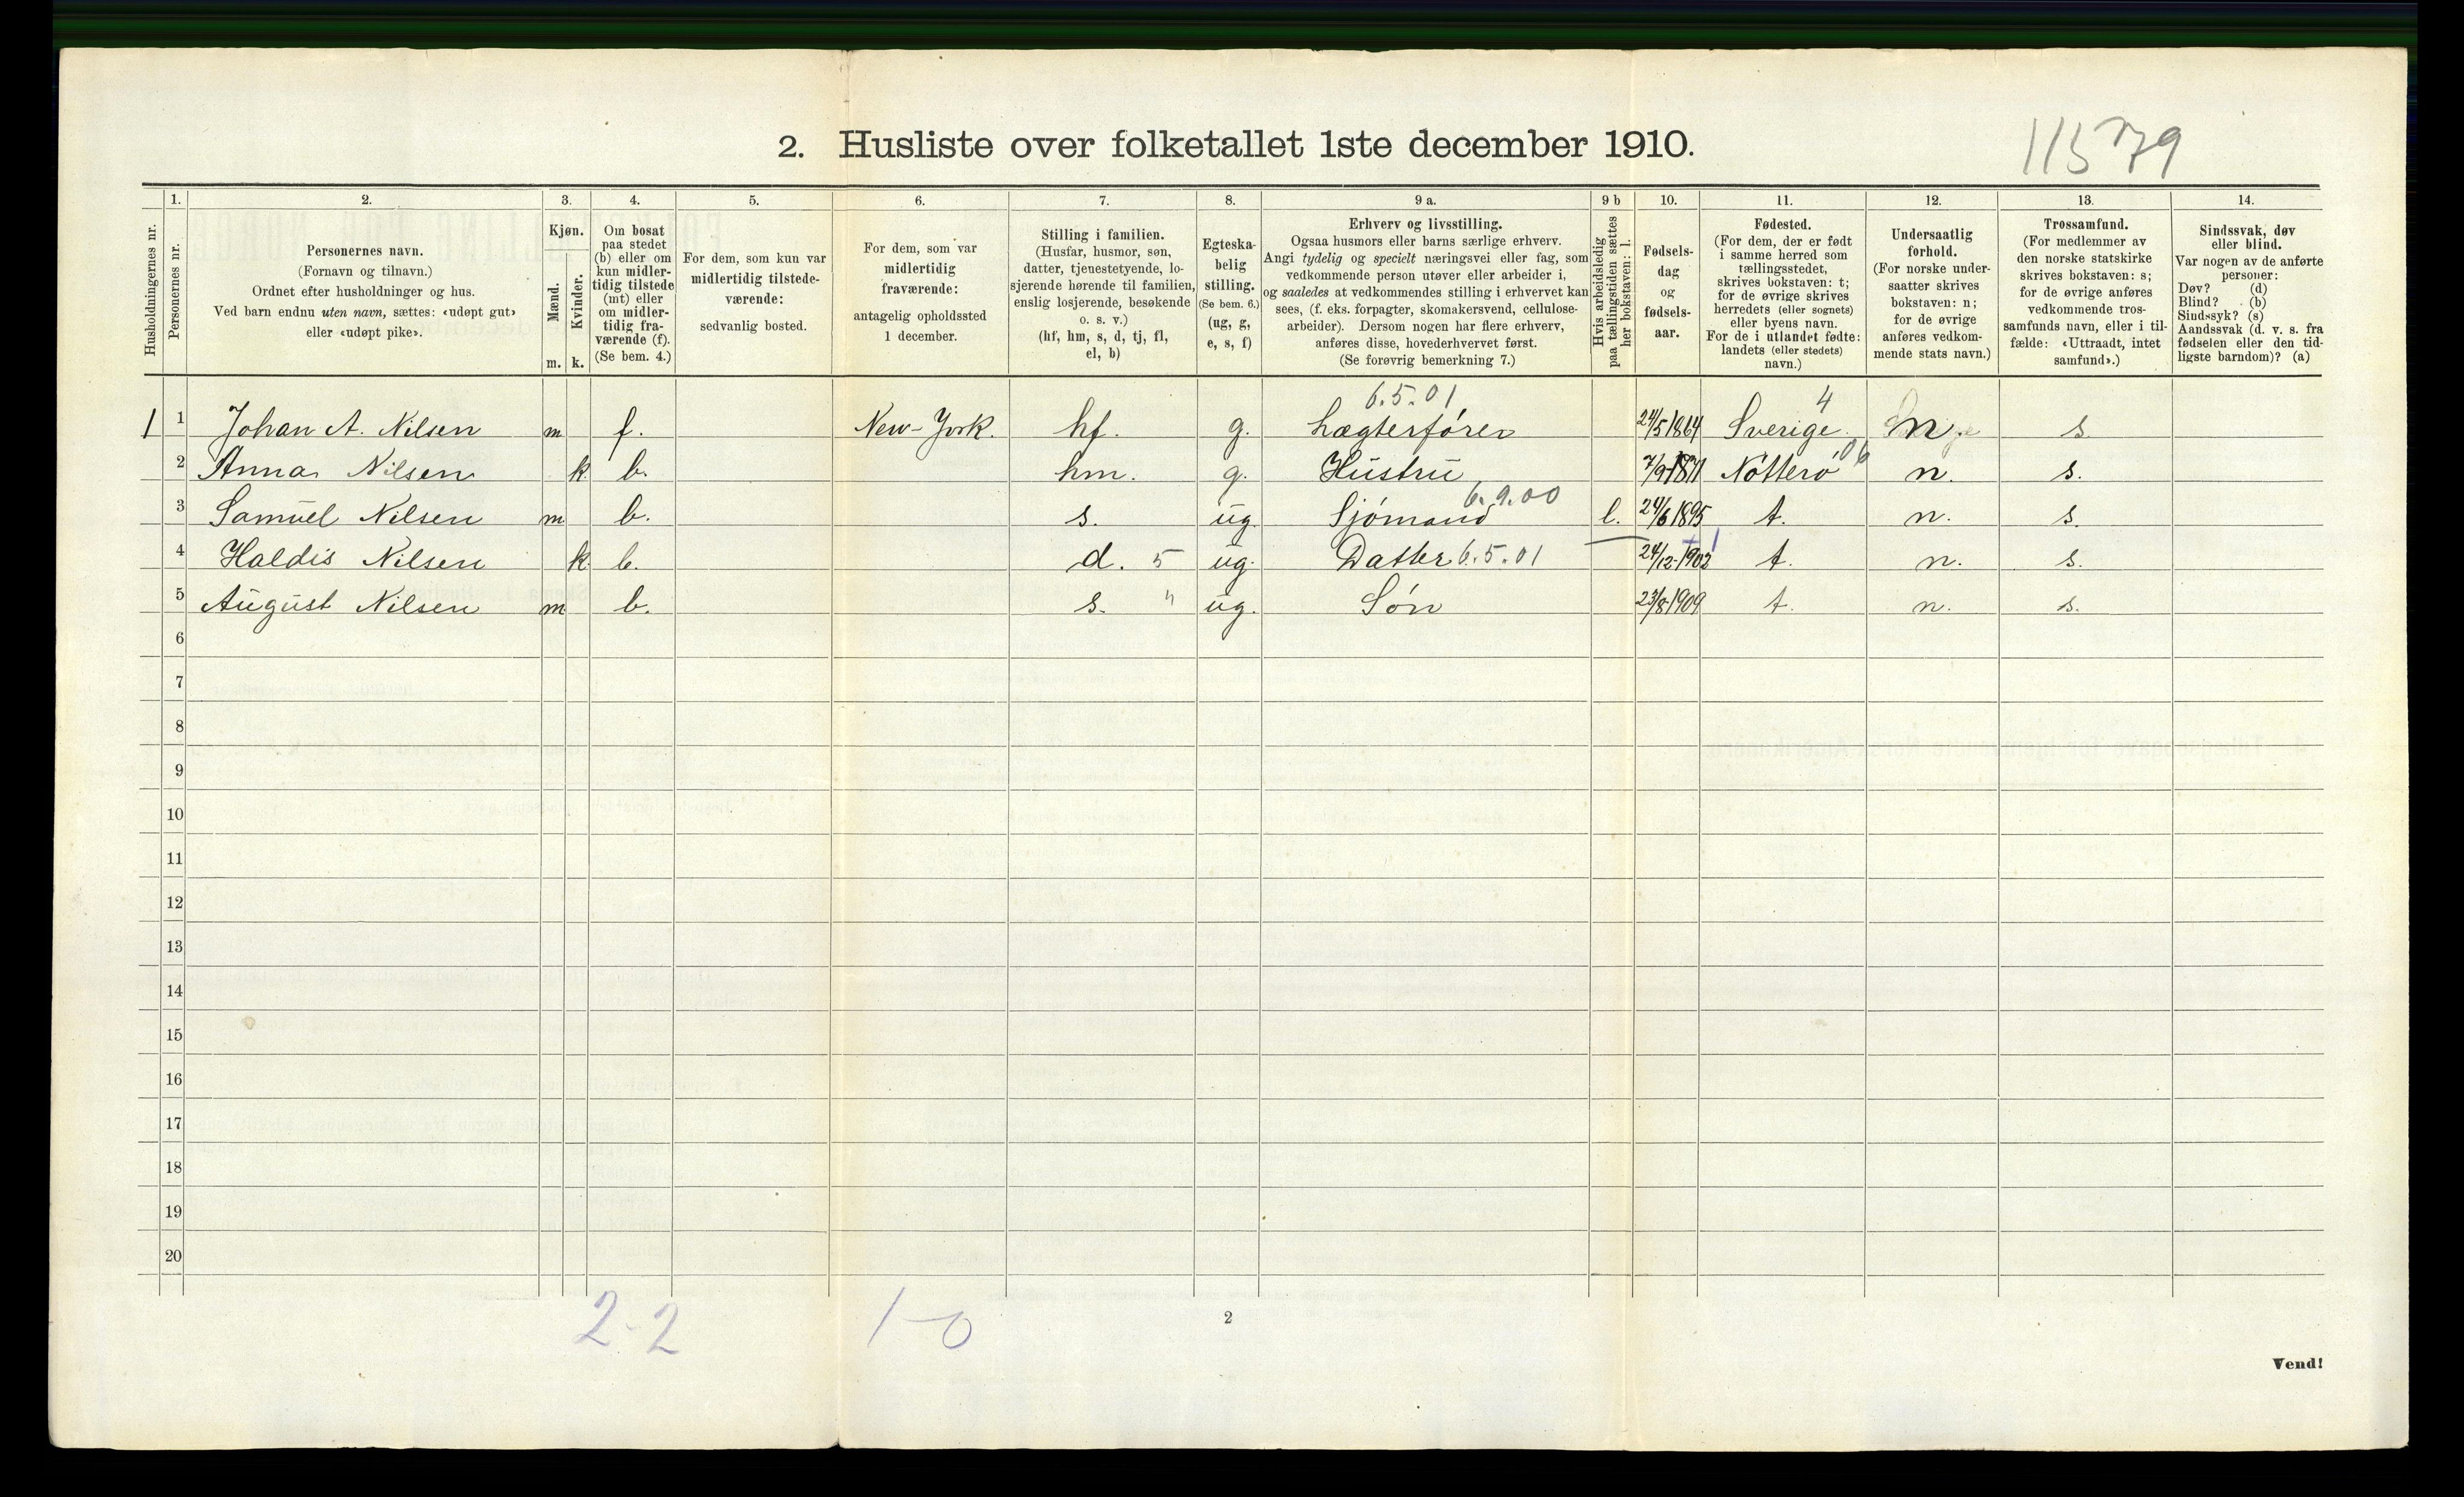 2. Husliste over folketallet 1ste december 1910.
11579
Husholdningernes nr.
1.
Personernes nr.
2.
Personernes navn.
(Fornavn og tilnavn.)
Ordnet efter husholdninger og hus.
Ved barn endnu uten navn, sættes: «udøpt gut»
eller «udøpt pike».
3.
Kjøn.
Mænd.
Kvinder.
m. k.
4.
Om bosat
paa stedet
(b) eller om
kun midler-
tidig tilstede
(mt) eller
om midler-
tidig fra-
værende (f).
(Se bem. 4.)
5.
For dem, som kun var
midlertidig tilstede-
værende:
sedvanlig bosted.
6.
For dem, som var
midlertidig
fraværende:
antagelig opholdssted
1 december.
7.
Stilling i familien.
(Husfar, husmor, søn,
datter, tjenestetyende, lo-
sjerende hørende til familien,
enslig losjerende, besøkende
o. s. v.)
(hf, hm, s, d, tj, fl,
el, b)
8.
Egteska-
belig
stilling.
(Se bem. 6.)
(ug, g,
e, s, f)
9 a.
Erhverv og livsstilling.
Ogsaa husmors eller barns særlige erhverv.
Angi tydelig og specielt næringsvei eller fag, som
vedkommende person utøver eller arbeider i,
og saaledes at vedkommendes stilling i erhvervet kan
sees, (f. eks. forpagter, skomakersvend, cellulose-
arbeider). Dersom nogen har flere erhverv,
anføres disse, hovederhvervet først.
(Se forøvrig bemerkning 7.)
9 b
Hvis arbeidsledig
paa tællingstiden sættes
her bokstaven: l.
10.
Fødsels-
dag
og
fødsels-
aar.
11.
Fødested.
(For dem, der er født
i samme herred som
tællingsstedet,
skrives bokstaven: t;
for de øvrige skrives
herredets (eller sognets)
eller byens navn.
For de i utlandet fødte:
landets (eller stedets)
navn.)
12.
Undersaatlig
forhold.
(For norske under-
saatter skrives
bokstaven: n;
for de øvrige
anføres vedkom-
mende stats navn.)
13.
Trossamfund.
(For medlemmer av
den norske statskirke
skrives bokstaven: s;
for de øvrige anføres
vedkommende tros-
samfunds navn, eller i til-
fælde: «Uttraadt, intet
samfund».)
14.
Sindssvak, døv
eller blind.
Var nogen av de anførte
personer:
Døv? (d)
Blind? (b)
Sindssyk? (s)
Aandssvak (d. v. s. fra
fødselen eller den tid-
ligste barndom)? (a)
6.5.01 4
1 1 Johan A. Nilsen m f. New-York. hf. g. Lægterfører 24/5 1864 Sverige. n. s.
2 Anna Nilsen k b. hm. g. Hustru 7/9 1871 Nøtterø 06 n. s.
3 Samuel Nilsen m b. s. ug. Sjømand 6.9.00 l. 24/6 1895 t. n. s.
4 Haldis Nilsen k b. d. 5 ug. Datter 6.5.01 24/12 1902 1 t. n. s.
5 August Nilsen m b. s. " ug. Søn 23/8 1909 t. n. s.
6
7
8
9
10
11
12
13
14
15
16
17
18
19
20
2-2 1-0
2
Vend!